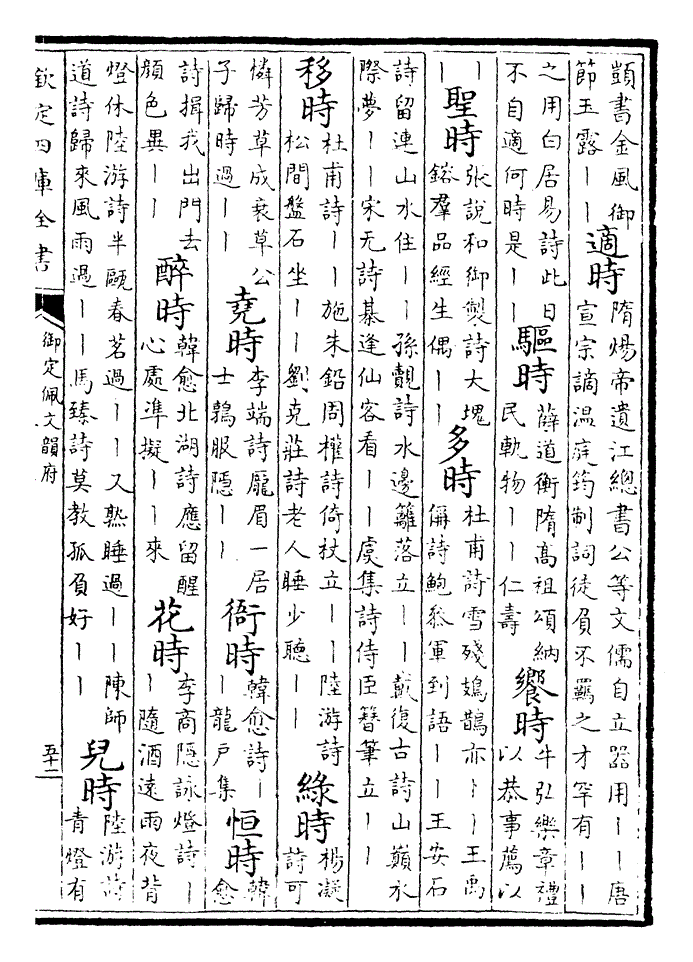 顗書金風御
節玉露丨丨
適時
隋煬帝遺江總書公等文儒自立器用丨丨唐
宣宗謫温庭筠制詞徒負不羈之才罕有丨丨
之用白居易詩此日
不自適何時是丨丨
驅時
薛道衡隋高祖頌納
民軌物丨丨仁壽
饗時
牛弘樂章禮
以恭事薦以
丨
丨
聖時
張説和御製詩大塊
鎔羣品經生偶丨丨
多時
杜甫詩雪殘鳷鵲亦丨丨王禹
偁詩鮑叅軍到語丨丨王安石
詩留連山水住丨丨孫覿詩水邊籬落立丨丨戴復古詩山巔水
際夢丨丨宋无詩棊逢仙客看丨丨虞集詩侍臣簪筆立丨丨
移時
杜甫詩丨丨施朱鉛周權詩倚杖立丨丨陸游詩
松間盤石坐丨丨劉克莊詩老人睡少聽丨丨
綠時
楊凝
詩可
憐芳草成衰草公
子歸時過丨丨
堯時
李端詩龎眉一居
士鶉服隱丨丨
衙時
韓愈詩丨
丨龍户集
恒時
韓
愈
詩揖我出門去
顔色異丨丨
醉時
韓愈北湖詩應留醒
心處準擬丨丨來
花時
李商隠詠燈詩丨
丨隨酒遠雨夜背
燈休陸游詩半甌春茗過丨丨又熟睡過丨丨陳師
道詩歸來風雨過丨丨馬臻詩莫教孤負好丨丨
兒時
陸游詩
青燈有
欽定四庫全書
御定佩文韻府
五十二